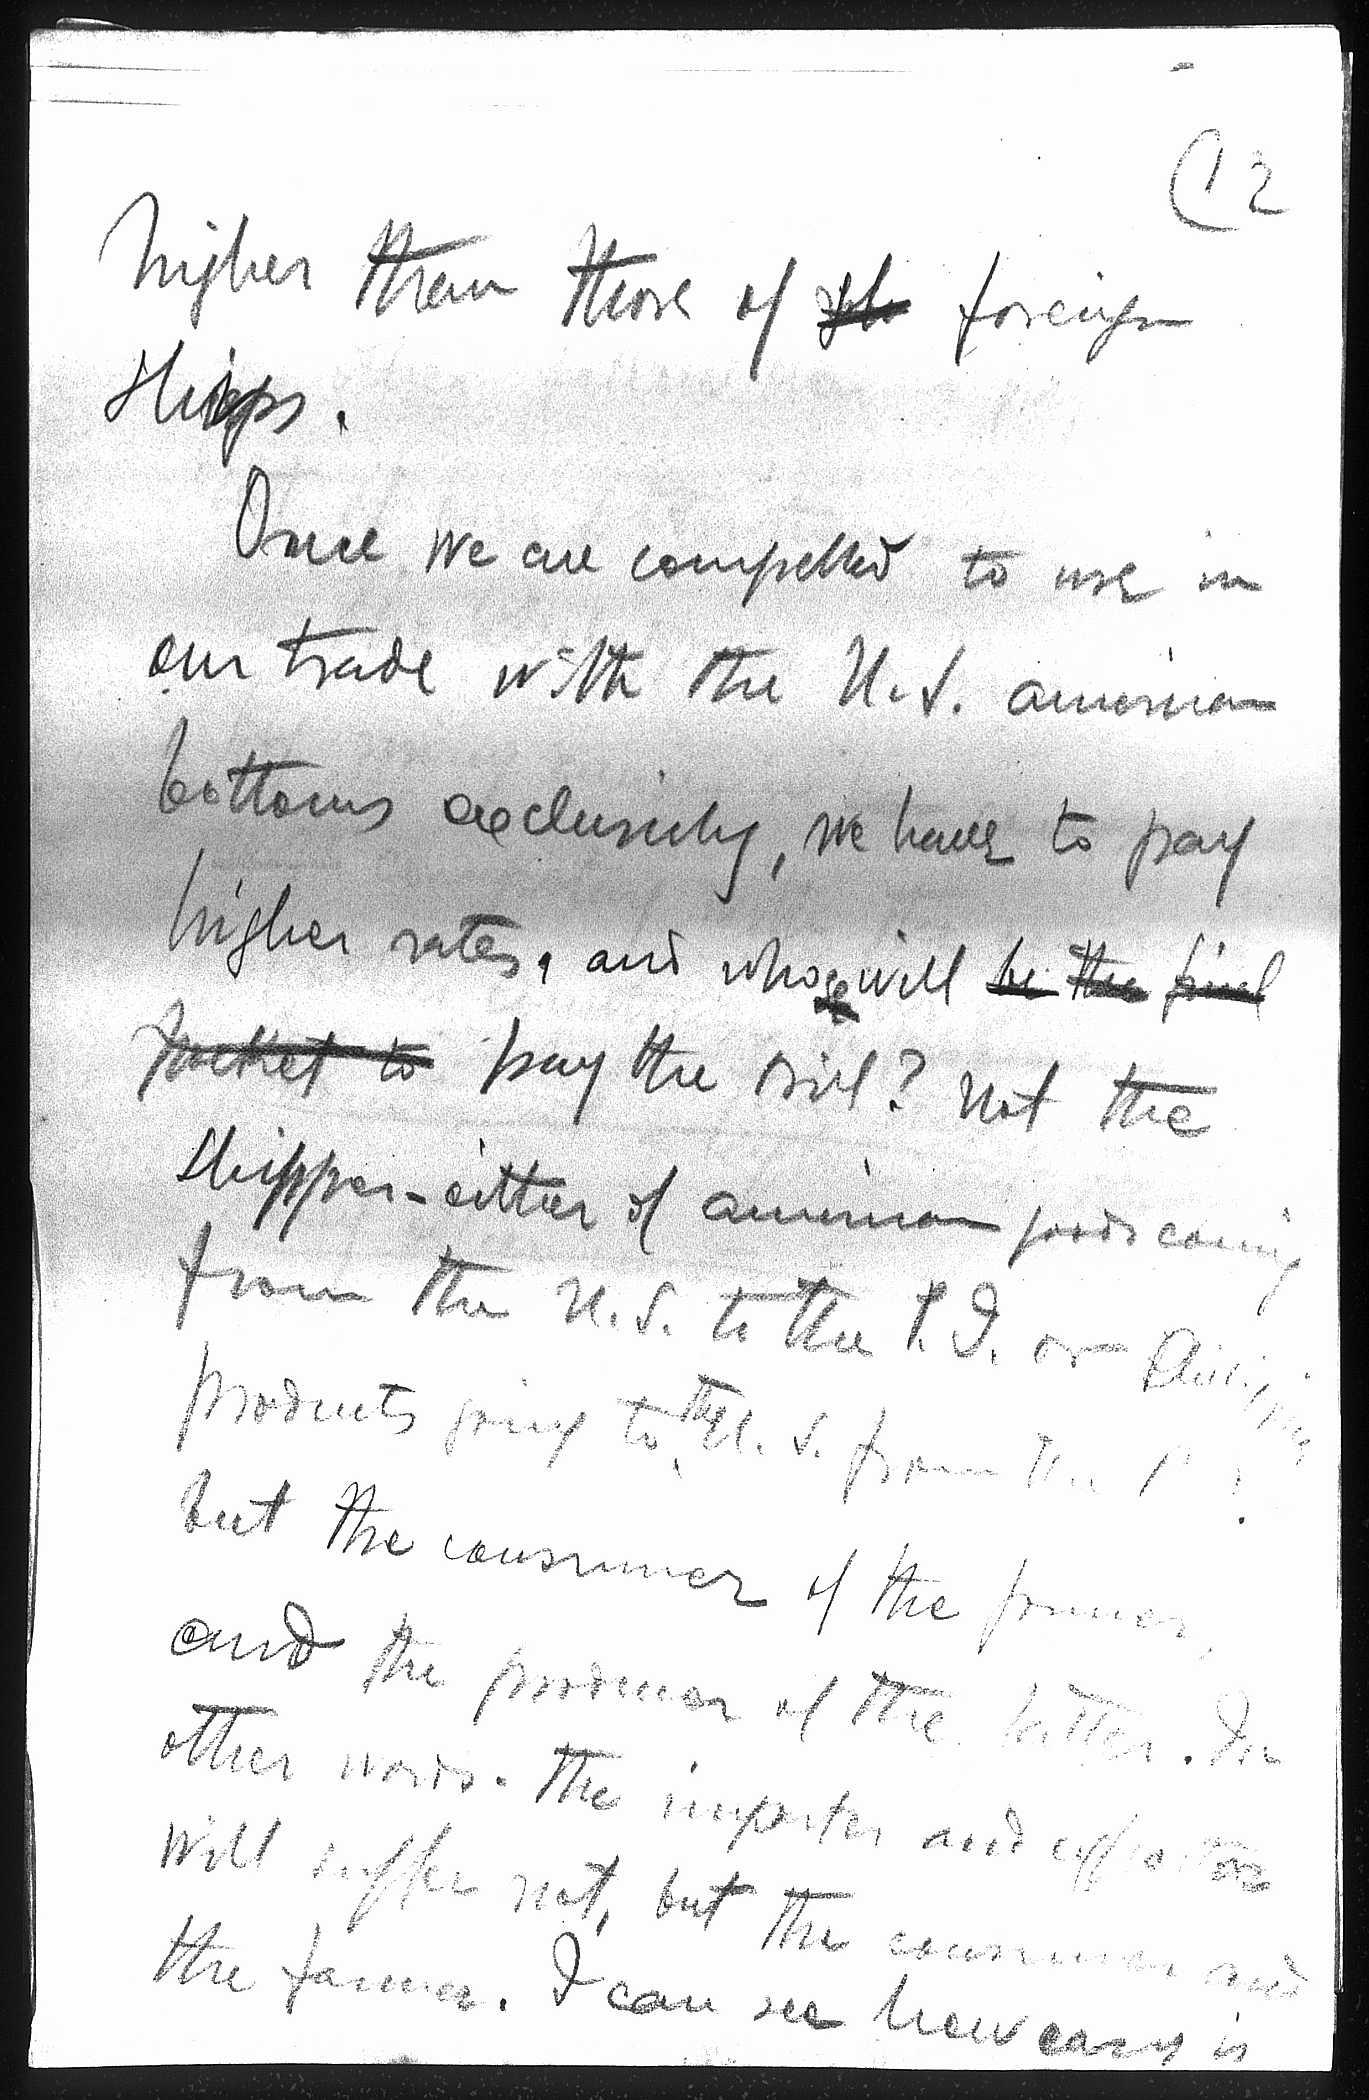 (12
higher than those of foreign
shipps.
Once we are compelled to use in
our trade with the U.S. american
bottoms exclusively, we have to pay
higher rates, and who will be the final
pocket to pay the bill? Not the
shipper - either of american goods coming
from the U.S. to the P.I. or Philippine
products going to the U.S. from the P.I.
but the consumer of the former,
and the producer of the latter. In
other words - the importer and exporter
will suffer not, but the consumer and
the farmer. I can see how easy is